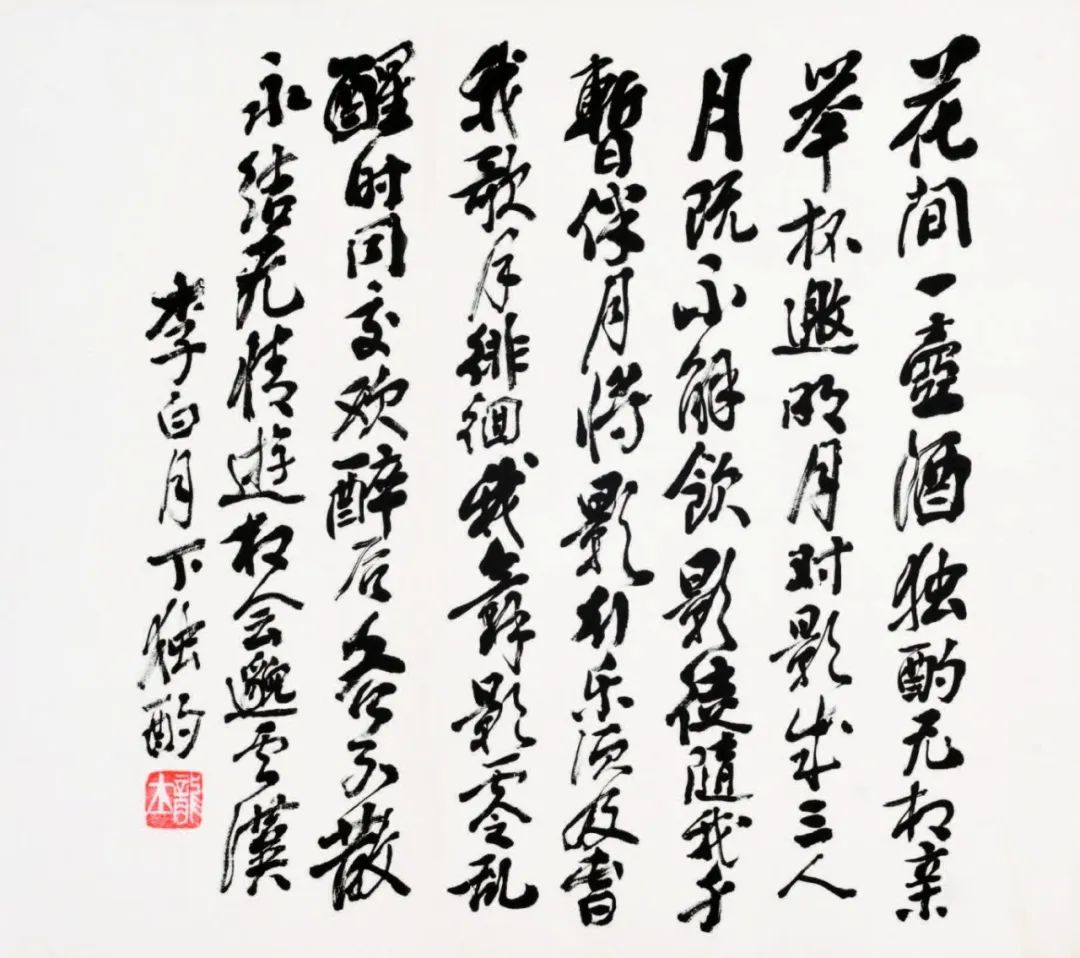 花间一壺酒独酌无相亲
举杯邀明月对影成三人
月既不解飲影徒隨我身
暫伴月将影行乐须及春
我歌月徘徊我舞影零乱
醒时同交欢醉后各分散
永结无情遊相会邈云漢
李白月下独酌
龍